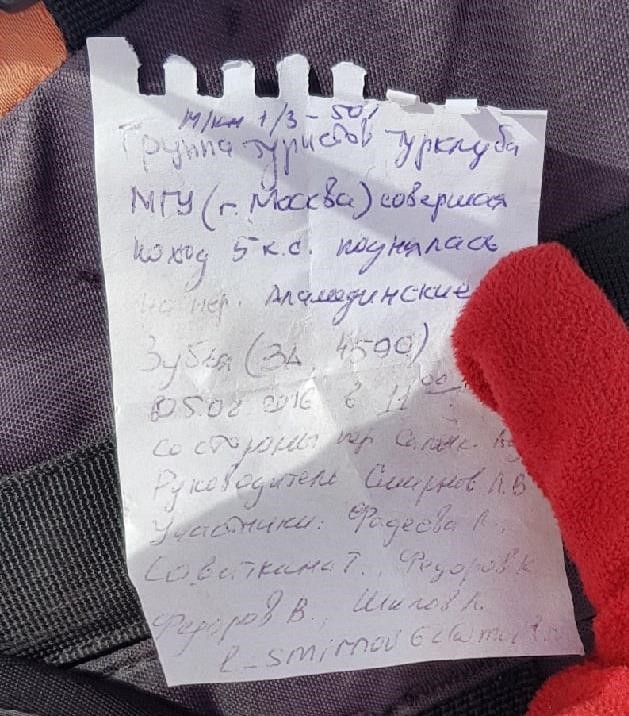 М/км 1/3 - 50%
Группа туристов турклуба
МГУ (г. Москва) совершая
поход 5 к.с. поднялась
на пер. Аламединские
Зубья (3А, 4590)
05.08 2016 в 11 00
со стороны пер
Руководитель Смирнов Л.В
Участники: Фадеева
Т., Федоров К
Федоров В, Шилов